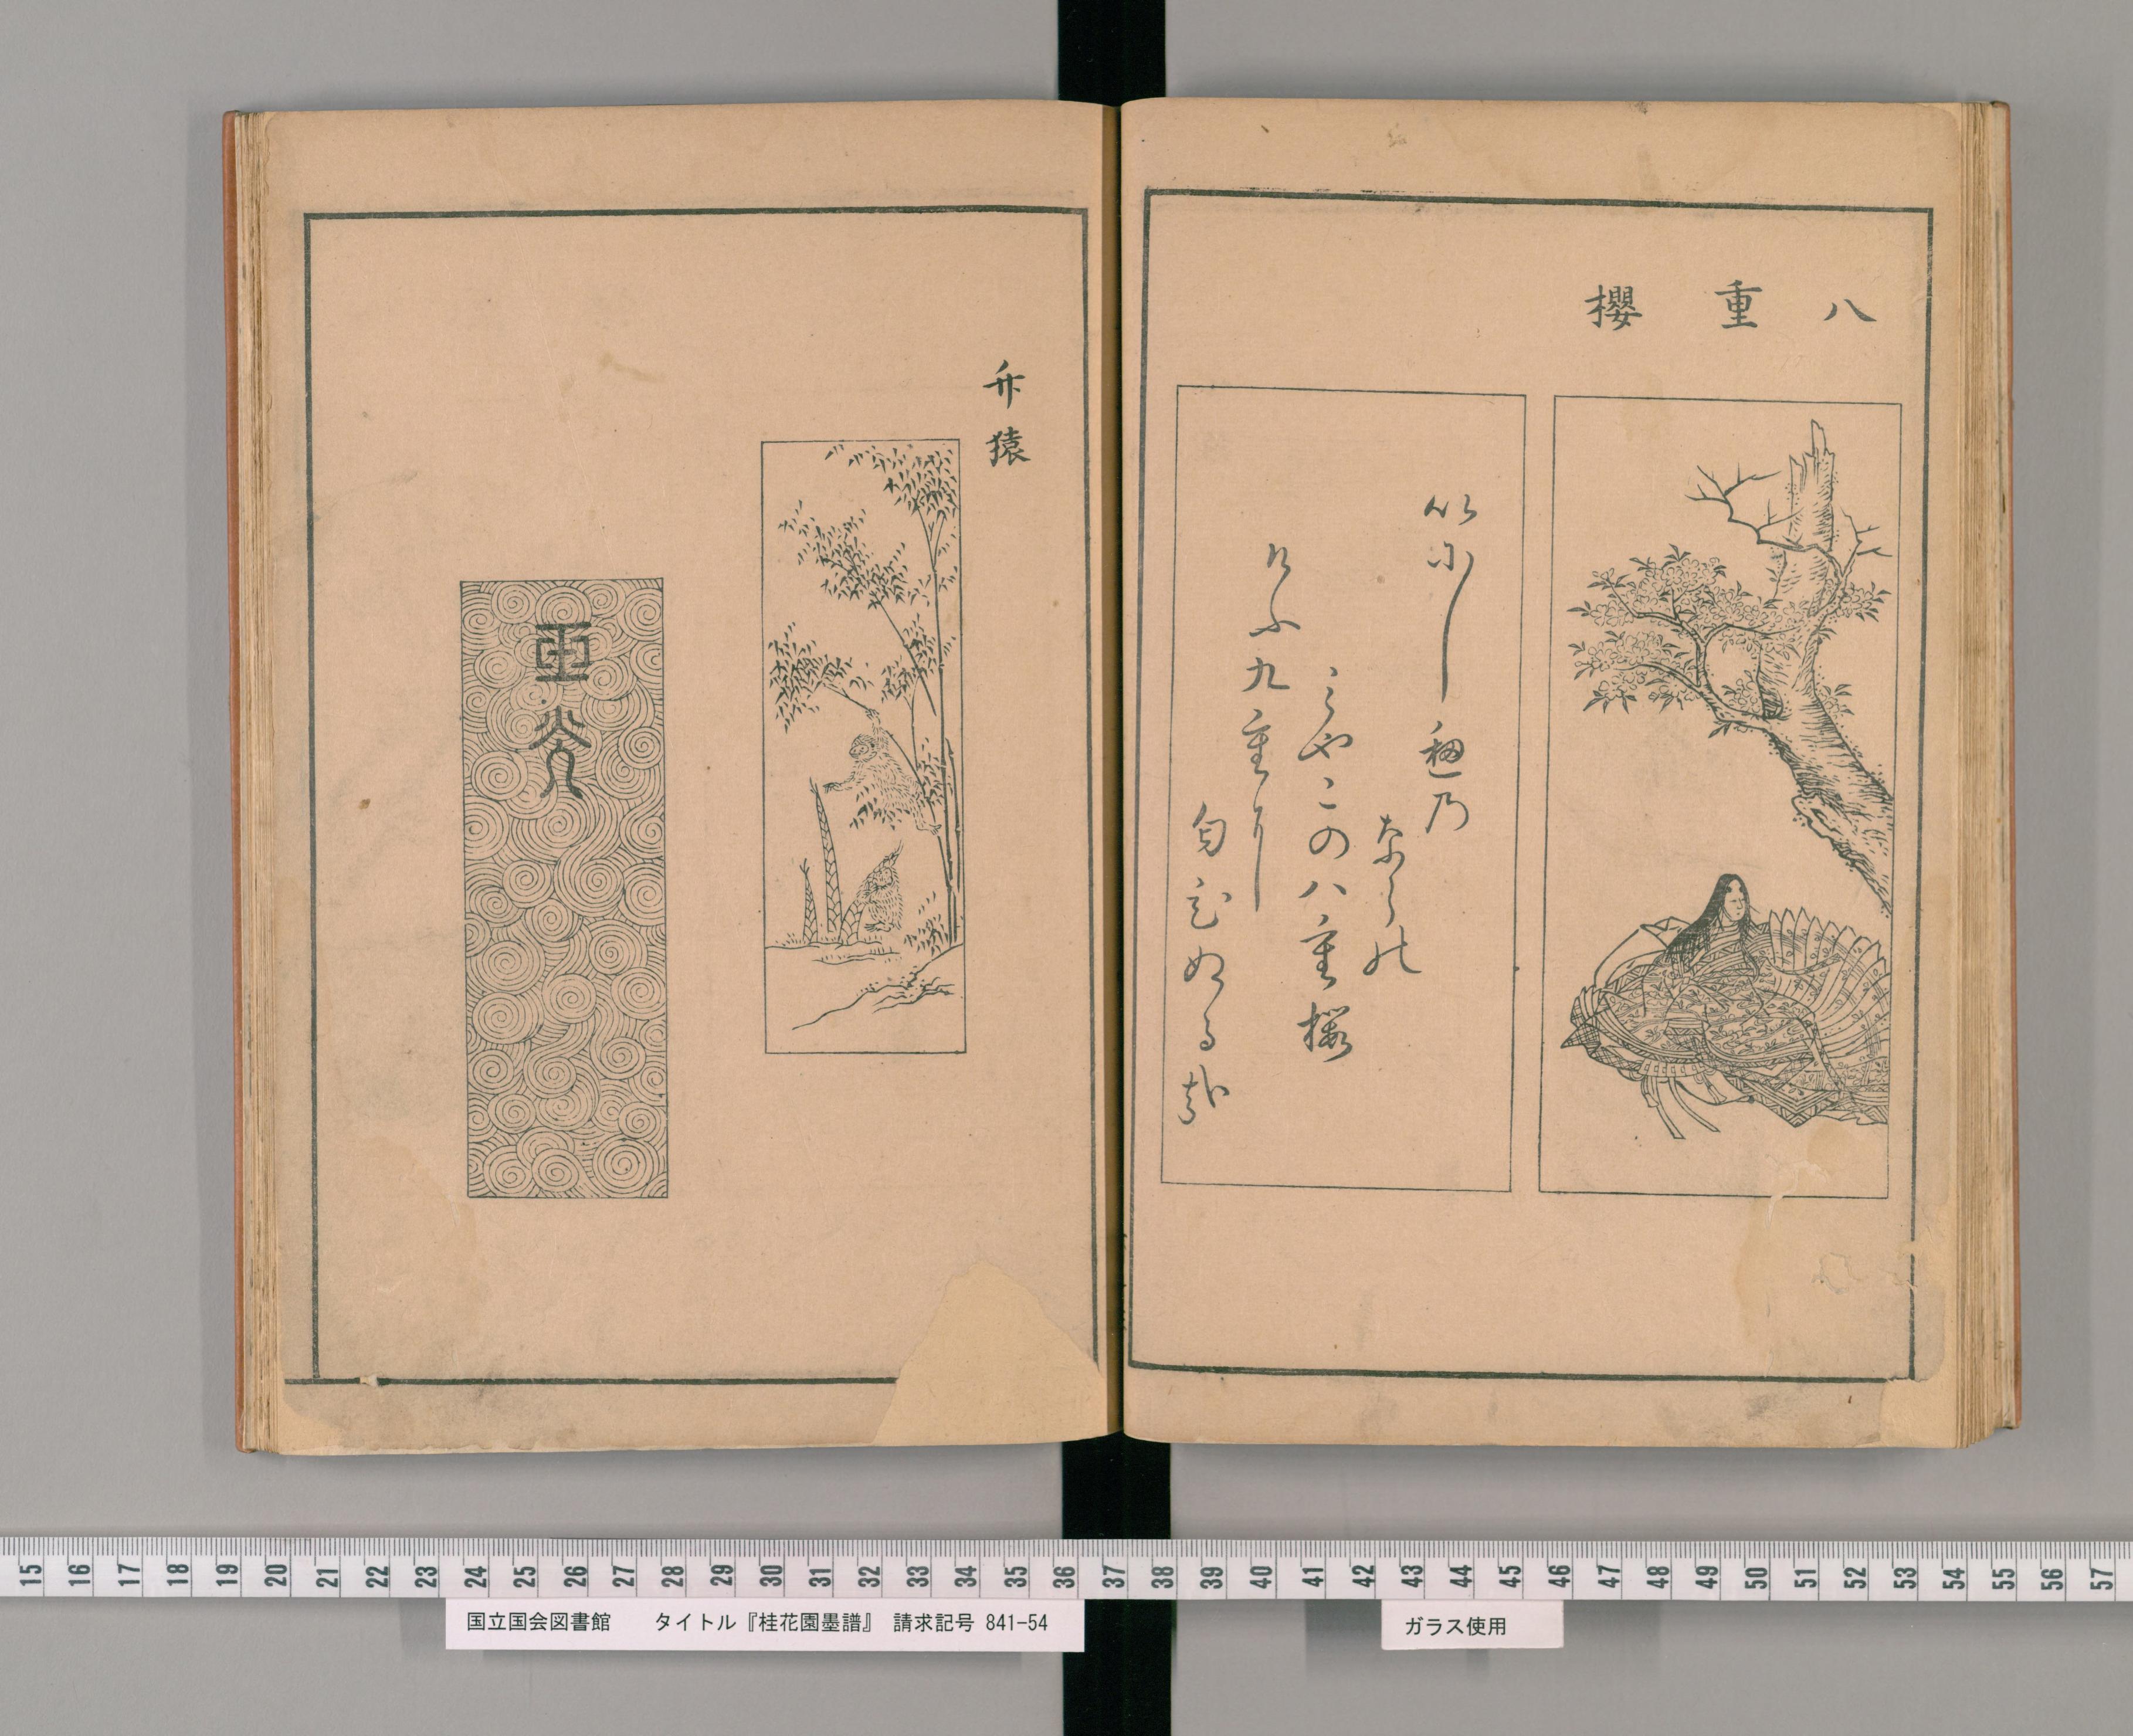 八重櫻
いにしへ乃
ならの
みやこの八重櫻
けふ九重に
匂ひぬる哉
竹猿
15 16 17 18 19 20 21 22 23 24 25 26 27 28 29 30 31 32 33 34 35 36 37 38 39 40 41 42 43 44 45 46 47 48 49 50 51 52 53 54 55 56 57
国立国会図書館 タイトル『桂花園墨譜』 請求記号 841-54
ガラス使用